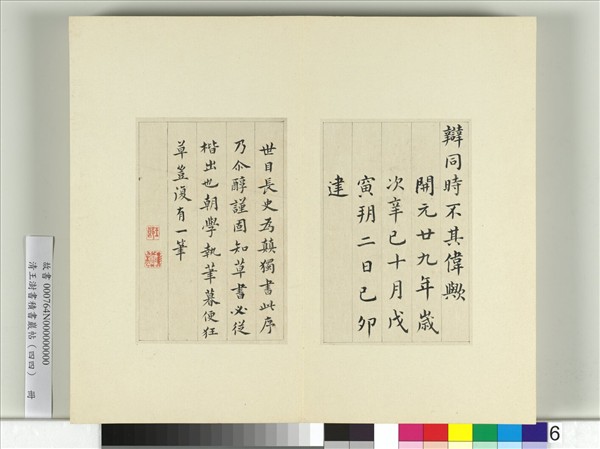 辯同時不其偉歟
開元廿九年歲
次辛巳十月戊
寅朔二日己卯
建
世目長史為顛獨書此序
乃尒醇謹固知草書必從
楷出也朝學執筆暮便狂
草豈復有一筆
故書 000764N000000000
清王澍書積書巖帖（四四） 冊
6